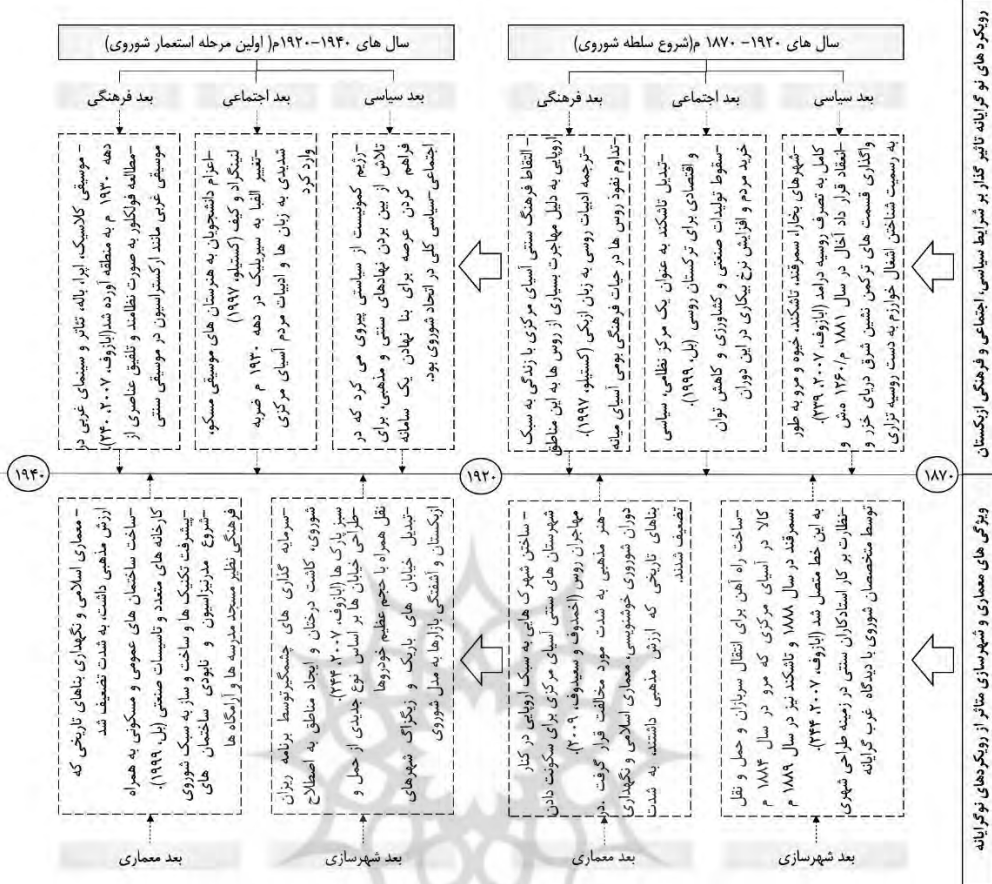 رویکرد های نو گرایانه تاثیر گذار بر شرایط سیاسی، اجتماعی و فرهنگی ازبکستان
سال های ۱۹۲۰- ۱۸۷۰ م(شروع سلطه شوروی)
بعد سیاسی
-شهرهای بخارا، سمرقند، تاشکند، خیوه و مرو به طور
کامل به تصرف روسیه درآمد (ابازوف، ۲۰۰۷، ۲۳۹).
-انعقاد قرار داد آخال در سال ۱۸۸۱ م/۱۲۶۰ ه.ش و
واگذاری قسمت های ترکمن نشین شرق دریای خزر و
به رسمیت شناختن اشغال خوارزم به دست روسیه تزاری
بعد اجتماعی
-تبدیل تاشکند به عنوان یک مرکز نظامی، سیاسی
و اقتصادی برای ترکستان روسی (بل، ۱۹۹۹).
-سقوط تولیدات صنعتی و کشاورزی و کاهش توان
خرید مردم و افزایش نرخ بیکاری در این دوران
بعد فرهنگی
- التقاط فرهنگ سنتی آسیای مرکزی با زندگی به سبک
اروپایی به دلیل مهاجرت بسیاری از روس ها به این مناطق
-ترجمه ادبیات روسی به زبان ازبکی (کستیلو، ۱۹۹۷).
-تداوم نفوذ روس ها در حیات فرهنگی بومی آسیای میانه
سال های ۱۹۴۰-۱۹۲۰م( اولین مرحله استعمار شوروی)
بعد سیاسی
-رژیم کمونیست از سیاستی پیروی می کرد که در
تلاش از بین بردن نهادهای سنتی و مذهبی، برای
فراهم کردن عرصه برای بنا نهادن یک سامانه
اجتماعی-سیاسی کلی در اتحاد شوروی بود.
بعد اجتماعی
-اعزام دانشجویان به هنرستان های موسیقی مسکو،
لنینگراد و کیف (کستیلو، ۱۹۹۷)
-تغییر الفبا به سیریلیک در دهه ۱۹۳۰ م ضربه
شدیدی به زبان ها و ادبیات مردم آسیای مرکزی
وارد کرد
بعد فرهنگی
- موسیقی کلاسیک، اپرا، باله، تئاتر و سینمای غربی در
دهه ۱۹۳۰ م به منطقه آورده شد(ابازوف، ۲۰۰۷، ۲۴۰).
-مطالعه فولکلور به صورت نظامند و تلفیق عناصری از
موسیقی غربی مانند ارکستراسیون در موسیقی سنتی
۱۸۷۰
۱۹۲۰
۱۹۴۰
ویژگی های معماری و شهرسازی متاثر از رویکردهای نوگرایانه
-ساخت راه آهن برای انتقال سربازان و حمل و نقل
کالا در آسیای مرکزی که مرو در سال ۱۸۸۴ م
،سمرقند در سال ۱۸۸۸ و تاشکند نیز در سال ۱۸۸۹ م
به این خط متصل شد (ابازوف، ۲۰۰۷، ۲۴۴).
-نظارت بر کار استادکاران سنتی در زمینه طراحی شهری
توسط متخصصان شوروی با دیدگاه غرب گرایانه
بعد شهرسازی
- ساختن شهرک هایی به سبک اروپایی در کنار
شهرستان های سنتی آسیای مرکزی برای سکونت دادن
مهاجران روس (احمدوف و سعیدوف، ۲۰۰۹).
-هنر مذهبی به شدت مورد مخالفت قرار گرفت. در
دوران شوروری خوشنویسی، معماری اسلامی و نگهداری
بناهای تاریخی که ارزش مذهبی داشتند، به شدت
تضعیف شدند.
بعد معماری
-سرمایه گذاری های چشمگیرتوسط برنامه ریزان
شوروی، کاشت درختان و ایجاد مناطق به اصطلاح
سبز پارک ها (ابازوف، ۲۰۰۷، ۲۴۴).
-طراحی خیابان ها بر اساس نوع جدیدی از حمل و
نقل همراه با حجم عظیم خودروها
-تبدیل خیابان های باریک و زیگزاگ شهرهای
ازبکستان و آشفتگی بازارها به مدل شوروی
بعد شهرسازی
- معماری اسلامی و نگهداری بناهای تاریخی که
ارزش مذهبی داشت، به شدت تضعیف شد
-ساخت ساختمان های عمومی و مسکونی به همراه
کارخانه های متعدد و تاسیسات صنعتی (بل، ۱۹۹۹).
-پیشرفت تکنیک ها و ساخت و ساز به سبک شوروی
-شروع مدرنیزاسیون و نابودی ساختمان های
فرهنگی نظیر مسجد مدرسه ها و آرامگاه ها
بعد معماری